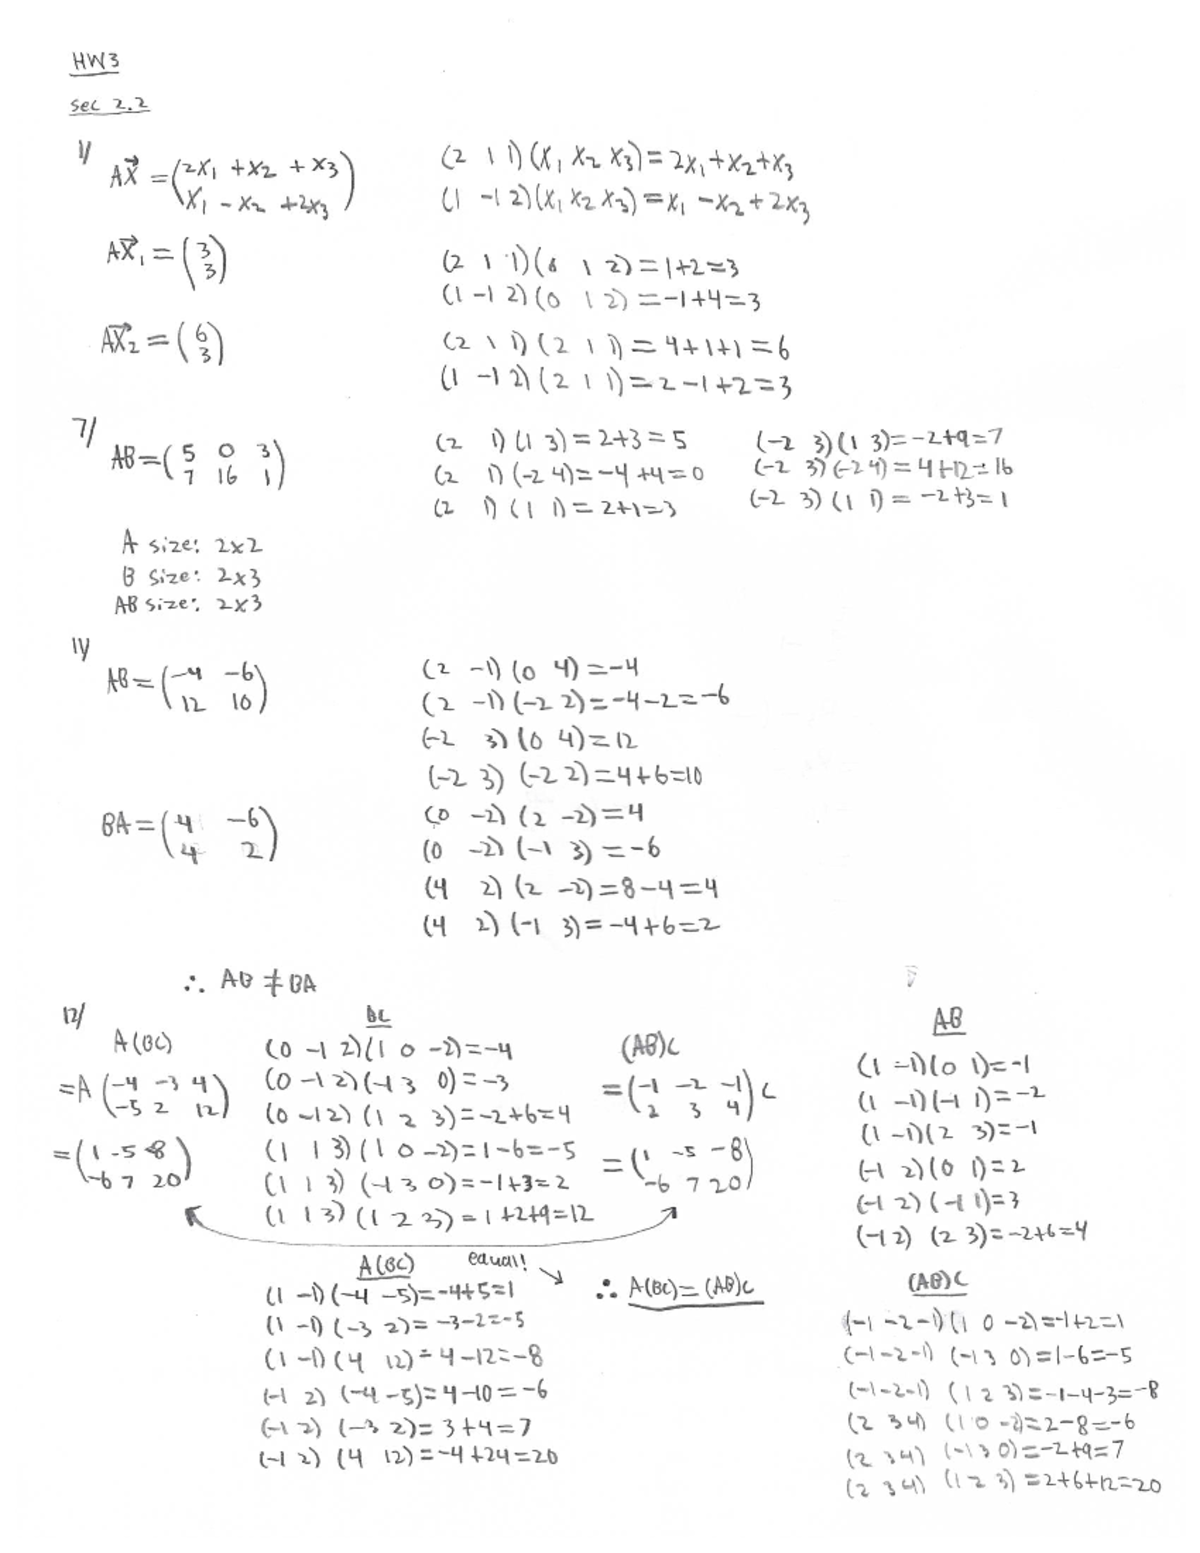 HW3
Sec 2.2
1/
AX⃗ = (2x₁ + x₂ + x₃
x₁ - x₂ + 2x₃)
(2 1 1)(x₁ x₂ x₃) = 2x₁ + x₂ + x₃
(1 -1 2)(x₁ x₂ x₃) = x₁ - x₂ + 2x₃
AX⃗₁ = (3
3)
(2 1 1)(0 1 2) = 1+2=3
(1 -1 2)(0 1 2) = -1+4=3
AX⃗₂ = (6
3)
(2 1 1)(2 1 1) = 4+1+1=6
(1 -1 2)(2 1 1) = 2-1+2=3
7/
AB = (5 0 3
7 16 1)
(2 1)(1 3) = 2+3=5
(2 1)(-2 4) = -4+4=0
(2 1)(1 1) = 2+1=3
(-2 3)(1 3) = -2+9=7
(-2 3)(-2 4) = 4+12=16
(-2 3)(1 1) = -2+3=1
A size: 2x2
B size: 2x3
AB size: 2x3
11/
AB = (-4 -6
12 10)
(2 -1)(0 4) = -4
(2 -1)(-2 2) = -4-2=-6
(-2 3)(0 4) = 12
(-2 3)(-2 2) = 4+6=10
BA = (4 -6
4 2)
(0 -2)(2 -2) = 4
(0 -2)(-1 3) = -6
(4 2)(2 -2) = 8-4=4
(4 2)(-1 3) = -4+6=2
∴ AB ≠ BA
12/
A(BC)
= A (-4 -3 4
-5 2 12)
= (1 -5 -8
-6 7 20)
BC
(0 -1 2)(1 0 -2) = -4
(0 -1 2)(-1 3 0) = -3
(0 -1 2)(1 2 3) = -2+6=4
(1 1 3)(1 0 -2) = 1-6=-5
(1 1 3)(-1 3 0) = -1+3=2
(1 1 3)(1 2 3) = 1+2+9=12
(AB)C
= (-1 -2 -1
2 3 4) C
= (1 -5 -8
-6 7 20)
AB
(1 -1)(0 1) = -1
(1 -1)(-1 1) = -2
(1 -1)(2 3) = -1
(-1 2)(0 1) = 2
(-1 2)(-1 1) = 3
(-1 2)(2 3) = -2+6=4
equal!
∴ A(BC) = (AB)C
A(BC)
(1 -1)(-4 -5) = -4+5=1
(1 -1)(-3 2) = -3-2=-5
(1 -1)(4 12) = 4-12=-8
(-1 2)(-4 -5) = 4-10=-6
(-1 2)(-3 2) = 3+4=7
(-1 2)(4 12) = -4+24=20
(AB)C
(-1 -2 -1)(1 0 -2) = -1+2=1
(-1 -2 -1)(-1 3 0) = 1-6=-5
(-1 -2 -1)(1 2 3) = -1-4-3=-8
(2 3 4)(1 0 -2) = 2-8=-6
(2 3 4)(-1 3 0) = -2+9=7
(2 3 4)(1 2 3) = 2+6+12=20